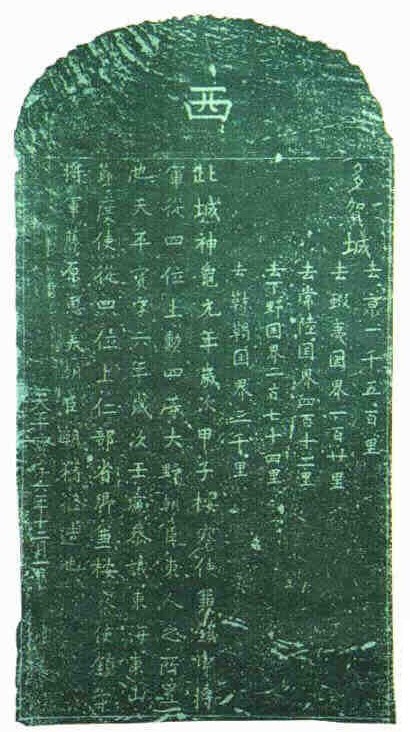 西
多賀城
去京一千五百里
去蝦夷国界一百廿里
去常陸国界四百十二里
去下野国界二百七十四里
去靺鞨国界三千里
此城神龜元年歳次甲子按察使兼鎮守将
軍從四位上勳四等大野朝臣東人之所置
也天平寶字六年歳次壬寅參議東海東山
節度使從四位上仁部省卿兼按察使鎮守
將軍藤原惠美朝臣朝獦修造也
天平寶字六年十二月一日